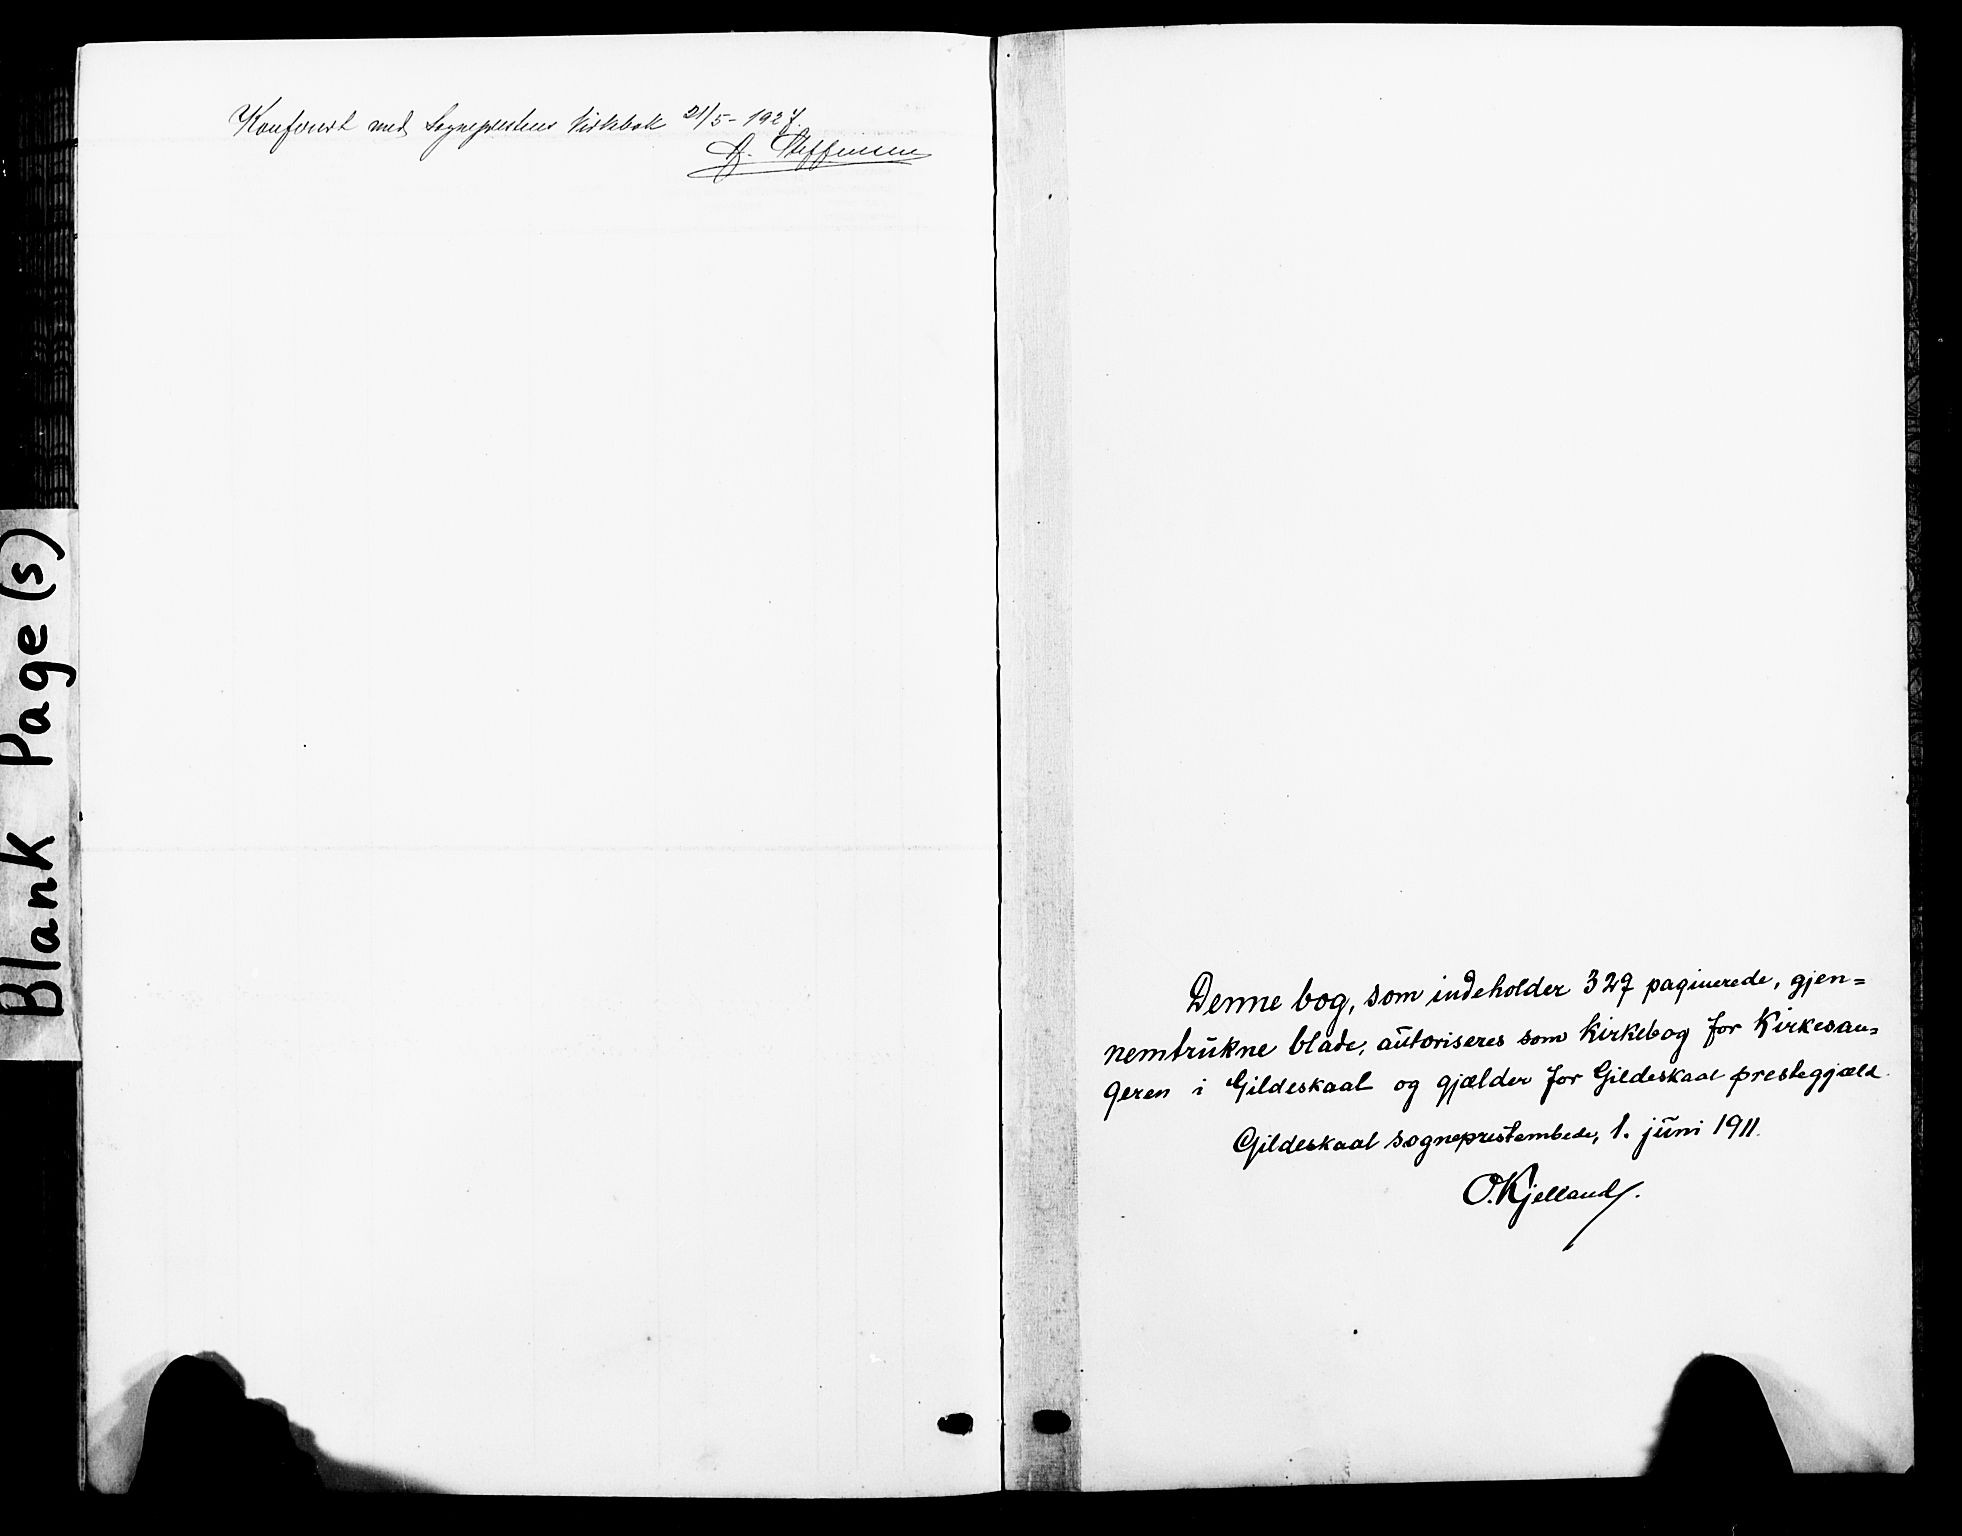 Konferert med Sogneprestens Kirkebok 21/5 - 1927.
Steffensen
Blank Page (s)
Denne bog, som indeholder 327 paginerede, gjen=
nemtrukne blade, autoriseres som kirkebog for Kirkesan=
geren i Gildeskaal og gjælder for Gildeskaal prestegjæld.
Gildeskaal sogneprestembede, 1. juni 1911.
O. Kjelland.